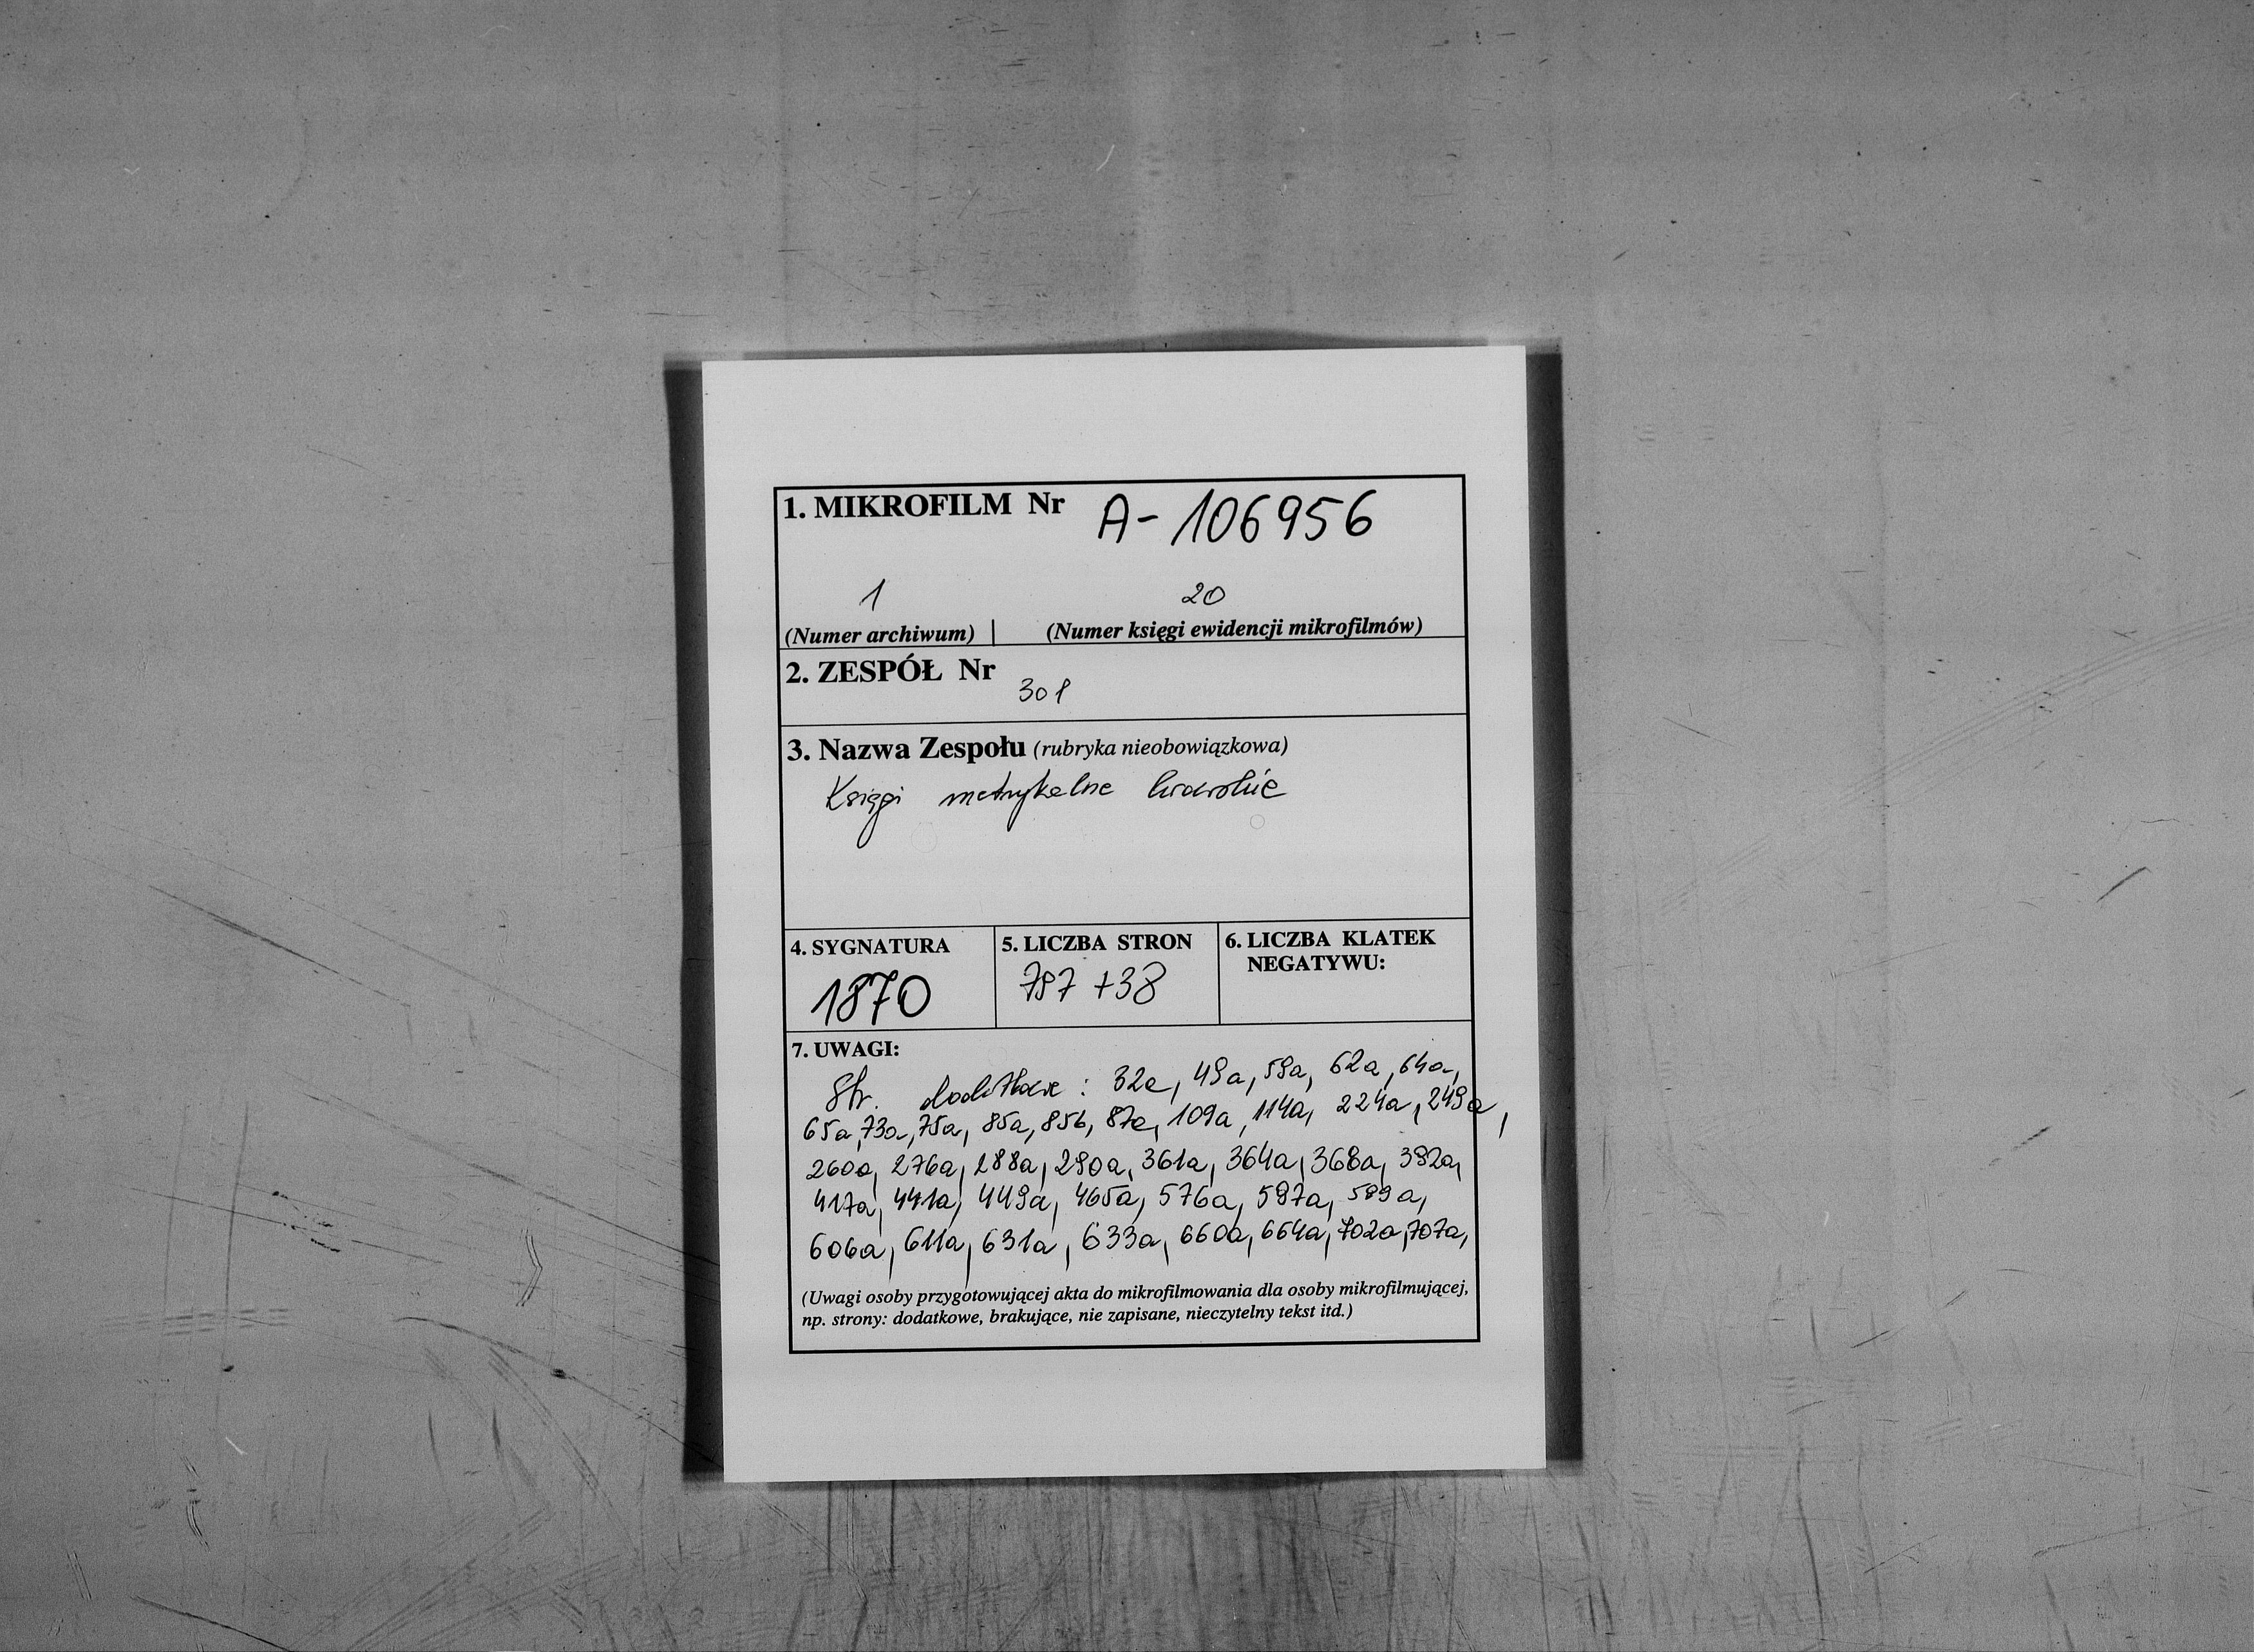 1. MIKROFILM Nr A-106956
1 20
(Numer archiwum) | (Numer księgi ewidencji mikrofilmów)
2. ZESPÓŁ Nr
301
3. Nazwa Zespołu (rubryka nieobowiązkowa)
Księgi metrykalne
4. SYGNATURA
1870
5. LICZBA STRON
797 +38
6. LICZBA KLATEK
NEGATYWU:
7. UWAGI:
Str. dodatkowe : 32a, 49a, 59a, 62a, 64a,
65a, 73a, 75a, 85a, 85b, 87a, 109a, 114a, 224a, 249a,
260a, 276a, 288a, 290a, 361a, 364a, 368a, 392a,
417a, 441a, 449a, 465a, 576a, 597a, 599a,
606a, 611a, 631a, 633a, 660a, 664a, 702a, 707a,
(Uwagi osoby przygotowującej akta do mikrofilmowania dla osoby mikrofilmującej,
np. strony: dodatkowe, brakujące, nie zapisane, nieczytelny tekst itd.)